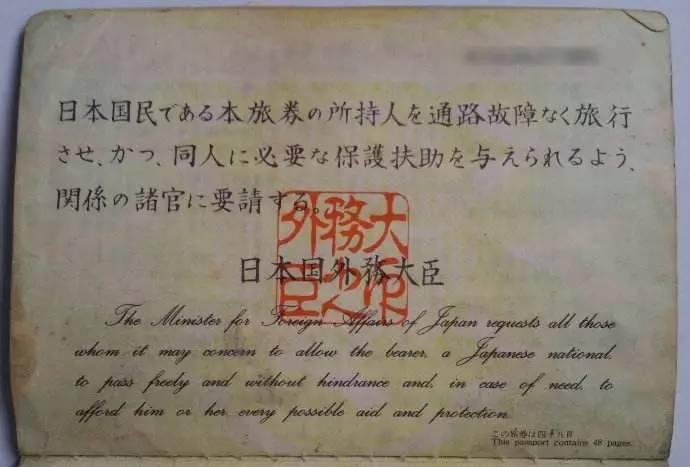 日本国民である本旅券の所持人を通路故障なく旅行
させ、かつ、同人に必要な保護扶助を与えられるよう、
関係の諸官に要請する。
日本国外務大臣
The Minister for Foreign Affairs of Japan requests all those
whom it may concern to allow the bearer, a Japanese national,
to pass freely and without hindrance and, in case of need, to
afford him or her every possible aid and protection.
この旅券は四十八頁
This passport contains 48 pages.